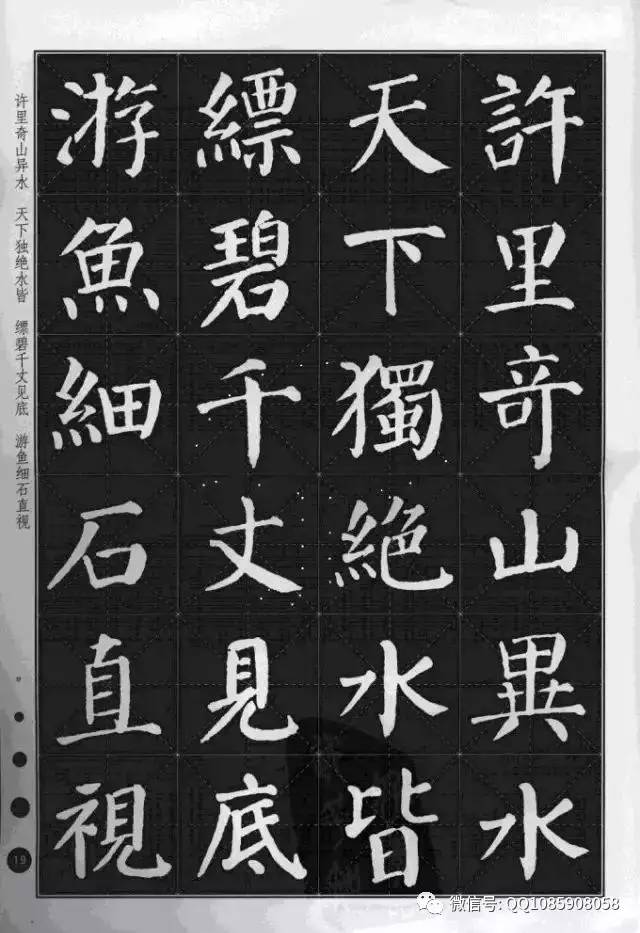 許里奇山異水
天下獨絶水皆
縹碧千丈見底
游魚細石直視
许里奇山异水 天下独绝水皆 缥碧千丈见底 游鱼细石直視
19
微信号: QQ1085908058